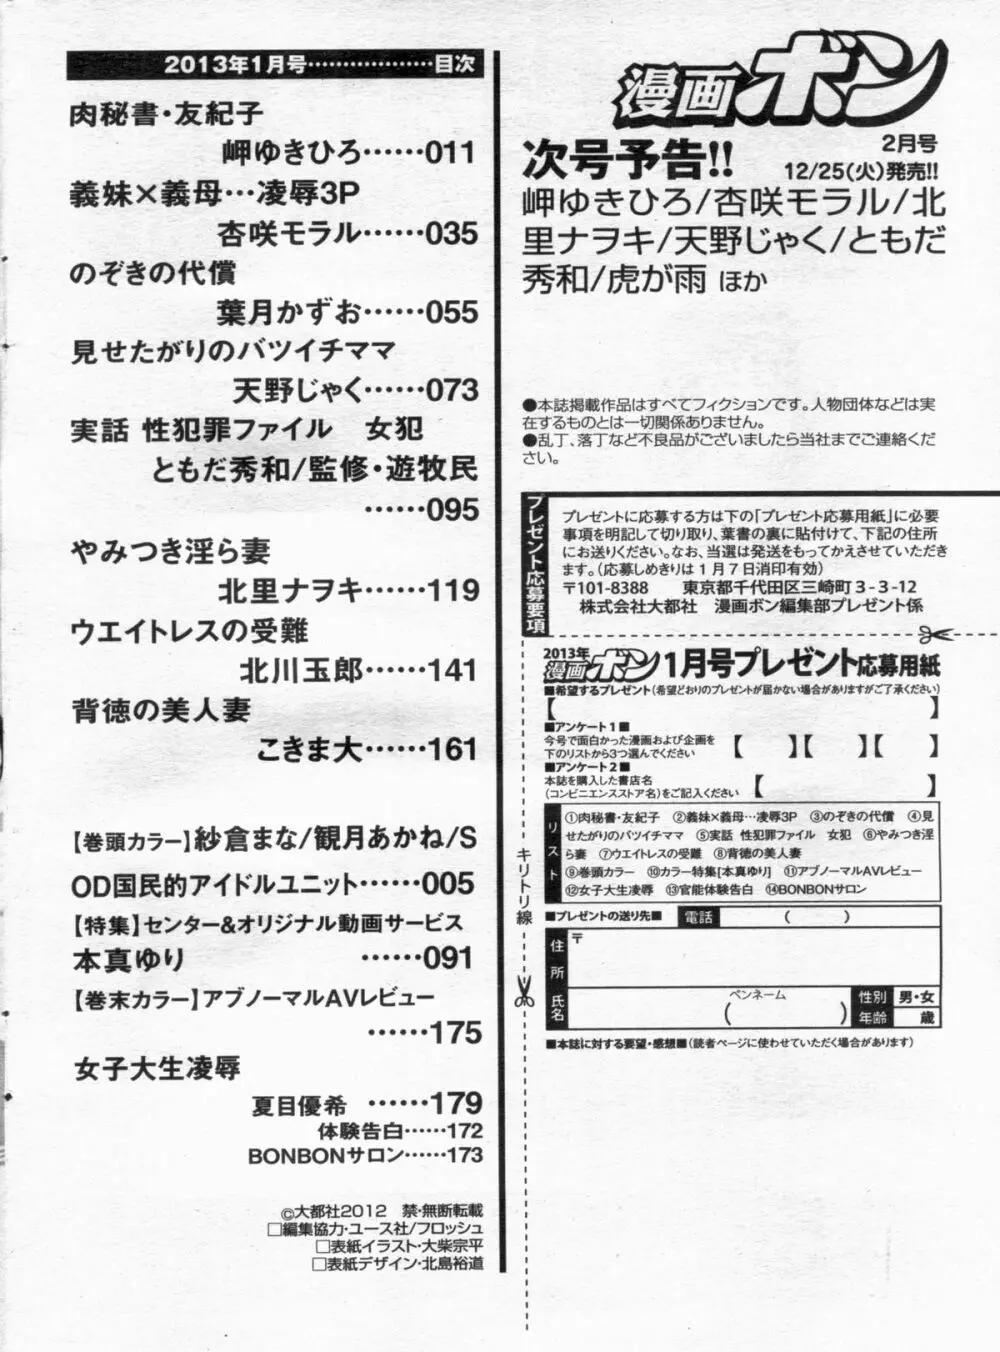 2013年1月号………………目次
肉秘書・友紀子
岬ゆきひろ……011
義妹×義母…凌辱3P
杏咲モラル……035
のぞきの代償
葉月かずお……055
見せたがりのバツイチママ
天野じゃく……073
実話 性犯罪ファイル 女犯
ともだ秀和/監修・遊牧民
……095
やみつき淫ら妻
北里ナヲキ……119
ウエイトレスの受難
北川玉郎……141
背徳の美人妻
こきま大……161
【巻頭カラー】紗倉まな/観月あかね/S
OD国民的アイドルユニット……005
【特集】センター&オリジナル動画サービス
本真ゆり ……091
【巻末カラー】アブノーマルAVレビュー
……175
女子大生凌辱
夏目優希 ……179
体験告白……172
BONBONサロン……173
©大都社2012 禁・無断転載
□編集協力・ユース社/フロッシュ
□表紙イラスト・大柴宗平
□表紙デザイン・北島裕道
漫画ボン
次号予告!!
2月号
12/25(火)発売!!
岬ゆきひろ/杏咲モラル/北
里ナヲキ/天野じゃく/ともだ
秀和/虎が雨 ほか
●本誌掲載作品はすべてフィクションです。人物団体などは実
在するものとは一切関係ありません。
●乱丁、落丁など不良品がございましたら当社までご連絡くだ
さい。
プレゼント応募要項
プレゼントに応募する方は下の「プレゼント応募用紙」に必要
事項を明記して切り取り、葉書の裏に貼付けて、下記の住所
にお送りください。なお、当選は発送をもってかえさせていただき
ます。(応募しめきりは1月7日消印有効)
〒101-8388 東京都千代田区三崎町3-3-12
株式会社大都社 漫画ボン編集部プレゼント係
キリトリ線
2013年
漫画ボン1月号プレゼント応募用紙
■希望するプレゼント(希望どおりのプレゼントが届かない場合がありますがご了承ください)
【 】
■アンケート1■
今号で面白かった漫画および企画を
下のリストから3つ選んでください
【 】【 】【 】
■アンケート2■
本誌を購入した書店名
(コンビニエンスストア名)をご記入ください
【 】
リスト
①肉秘書・友紀子 ②義妹×義母…凌辱3P ③のぞきの代償 ④見
せたがりのバツイチママ ⑤実話 性犯罪ファイル 女犯 ⑥やみつき淫
ら妻 ⑦ウエイトレスの受難 ⑧背徳の美人妻
⑨巻頭カラー ⑩カラー特集[本真ゆり] ⑪アブノーマルAVレビュー
⑫女子大生凌辱 ⑬官能体験告白 ⑭BONBONサロン
■プレゼントの送り先■ 電話 ( )
住所
〒
氏名
ペンネーム
( )
性別 男・女
年齢 歳
■本誌に対する要望・感想■(読者ページに使わせていただく場合があります)